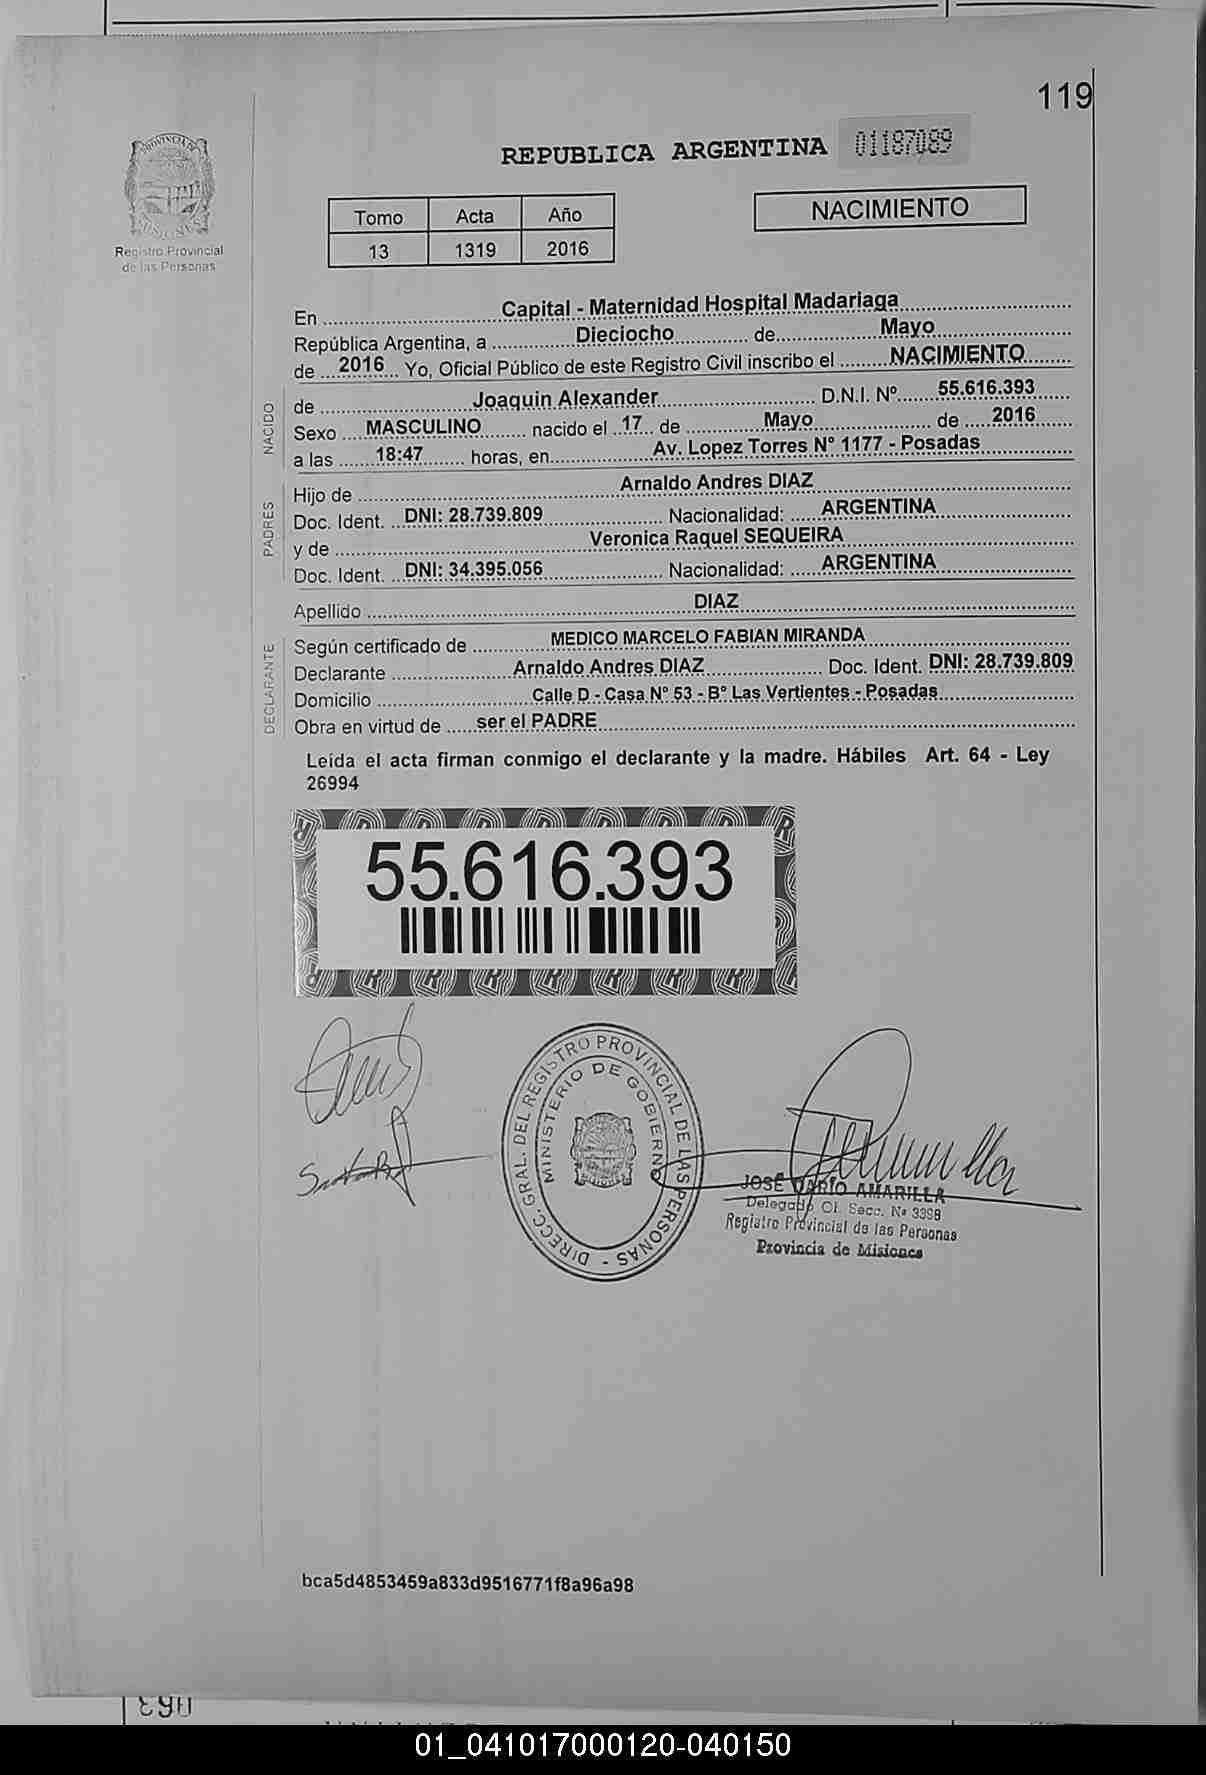 119
PROVINCIA DE
MISIONES
Registro Provincial
de las Personas
REPUBLICA ARGENTINA 01187089
Tomo Acta Año
13 1319 2016
NACIMIENTO
En Capital - Maternidad Hospital Madariaga
República Argentina, a Dieciocho de Mayo
de 2016 Yo, Oficial Público de este Registro Civil inscribo el NACIMIENTO
NACIDO
de Joaquin Alexander D.N.I. Nº 55.616.393
Sexo MASCULINO nacido el 17 de Mayo de 2016
a las 18:47 horas, en Av. Lopez Torres N° 1177 - Posadas
PADRES
Hijo de Arnaldo Andres DIAZ
Doc. Ident. DNI: 28.739.809 Nacionalidad: ARGENTINA
y de Veronica Raquel SEQUEIRA
Doc. Ident. DNI: 34.395.056 Nacionalidad: ARGENTINA
Apellido DIAZ
DECLARANTE
Según certificado de MEDICO MARCELO FABIAN MIRANDA
Declarante Arnaldo Andres DIAZ Doc. Ident. DNI: 28.739.809
Domicilio Calle D - Casa N° 53 - B° Las Vertientes - Posadas
Obra en virtud de ser el PADRE
Leída el acta firman conmigo el declarante y la madre. Hábiles Art. 64 - Ley
26994
55.616.393
DIRECC. GRAL. DEL REGISTRO PROVINCIAL DE LAS PERSONAS -
MINISTERIO DE GOBIERNO
JOSÉ DARÍO AMARILLA
Delegado Of. Secc. Nº 3398
Registro Provincial de las Personas
Provincia de Misiones
bca5d4853459a833d9516771f8a96a98
01_041017000120-040150